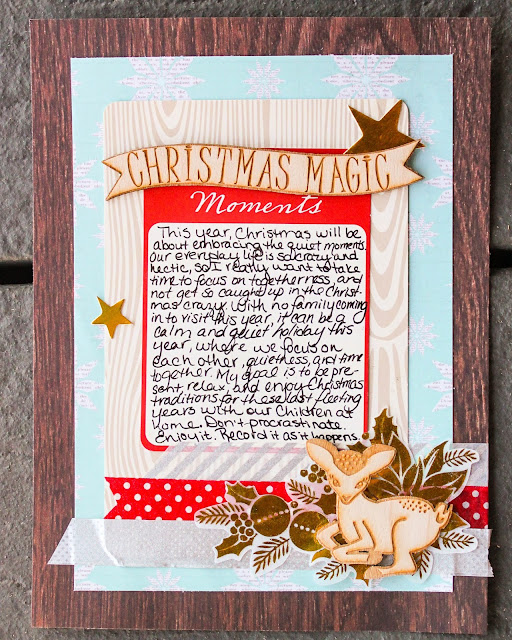 CHRISTMAS MAGIC
Moments
This year, Christmas will be
about embracing the quiet moments.
Our everyday life is so crazy and
hectic, so I really want to take
time to focus on togetherness, and
not get so caught up in the Christ-
mas crazy. With no family coming
in to visit this year, it can be a
calm and quiet holiday this
year, where we focus on
each other, quietness, and time
together. My goal is to be pre-
sent, relax, and enjoy Christmas
traditions for these last fleeting
years with our children at
home. Don't procrastinate.
Enjoy it. Record it as it happens.